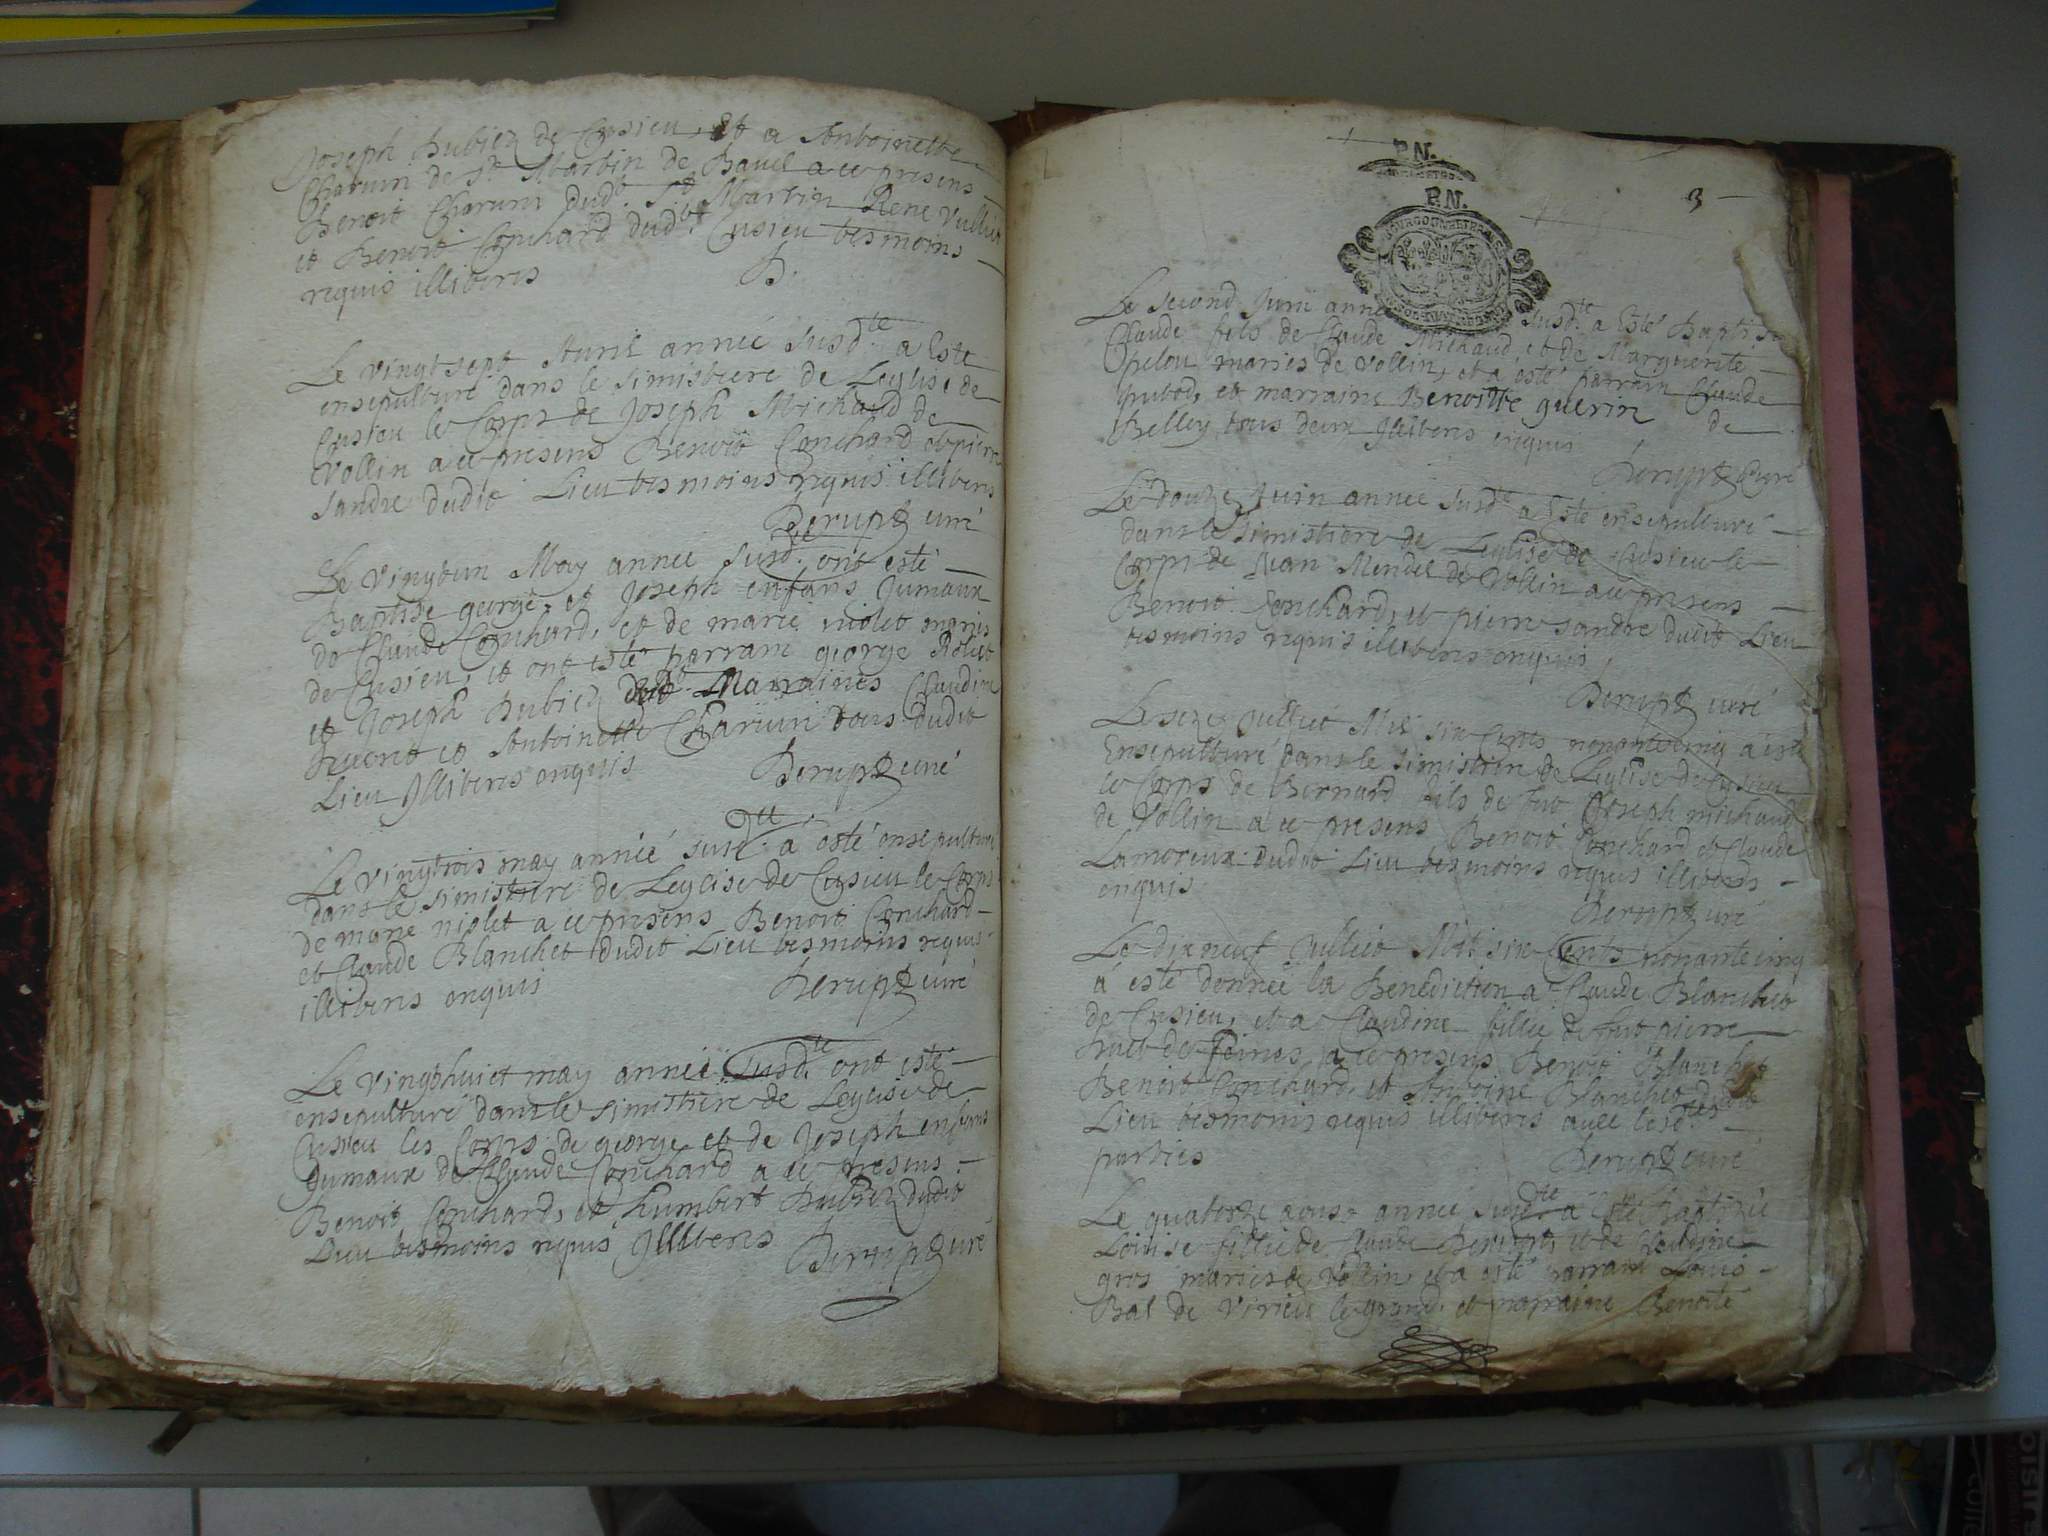 Joseph hubiez de Cusieu, Et a Antoinette
Charum de St Martin de Bavel a ce presens
Benoit Charum dudt St Martin Rene Vulliet
et Benoit Conchard dudit Cusieu tesmoins
requis illiteris
Le vingtsept Avril année susd.te a Esté
ensepulturé dans le simistiere de Leglise de
Cusieu le Corps de Joseph Michaud de
Vollin a ce presens Benoit Conchard et pierre
sandre dudit Lieu tesmoins requis illiteris
Derupt curé
Le vingtun May année susd.te ont esté
Baptisé george, et Joseph enfans Jumaux
de Claude Conchard, et de marie violet mariés
de Cusieu, et ont esté parrain george Rolet
et Joseph hubiez Marraines Claudine
huont et Antoinette Charum tous dudit
Lieu Illiteris enquis Derupt curé
Le vingtrois may année susd.te a esté ensepulturé
dans le simistiere de Leglise de Cusieu le Corps
de marie violet a ce presens Benoit Conchard
et Claude Blanchet dudit Lieu tesmoins requis
illiteris enquis Derupt curé
Le vingthuict may année susd.te ont esté
ensepulturé dans le simistiere de Leglise de
Cusieu les Corps de george et de Joseph enfans
Jumaux de Claude Conchard a ce presens
Benoit Conchard, et humbert hubiez dudit
Lieu tesmoins requis Illiteris Derupt curé
P.N.
P.N.
3
Le second Juin année susd.te a Esté Baptisé
Claude fils de Claude Michaud et de Marguerite
maries de Vollin, et a esté parrain Claude
et marraine Benoitte guerin de
Belley tous deux Illiteris enquis
Derupt Curé
Le douze Juin année susd.te a Esté ensepulturé
dans le simistiere de Leglise de Cusieu le
Corps de Jean Mendel de Vollin a ce presens
Benoit Conchard, et pierre sandre dudit Lieu
tesmoins requis illiteris enquis
Derupt curé
Le seze Julliet Mil six Cents nonantecinq a esté
Ensepulturé dans le simistiere de Leglise de Cusieu
le Corps de Bernard fils de fut Joseph michaud
de Vollin a ce presens Benoit Conchard et Claude
Lamoreux dudit Lieu tesmoins requis illiteris
enquis
Derupt curé
Le dixneuf Julliet Mil six Cents nonantecinq
a esté donnée la Benediction a Claude Blanchet
de Cusieu, et a Claudine fillie de fut pierre
huet de a ce presens Benoit Blanchet
Benoit Conchard, et Antoine Blanchet dudit
Lieu tesmoins requis illiteris avec lesdtes
parties Derupt curé
Le quatorze aoust année susd.te a Esté Baptizée
Louise fillie de Claude Derupt, et de Claudine
gros maries de Vollin, et a esté parrain Louis
Bal de Virieu le grand, et marraine Benoite